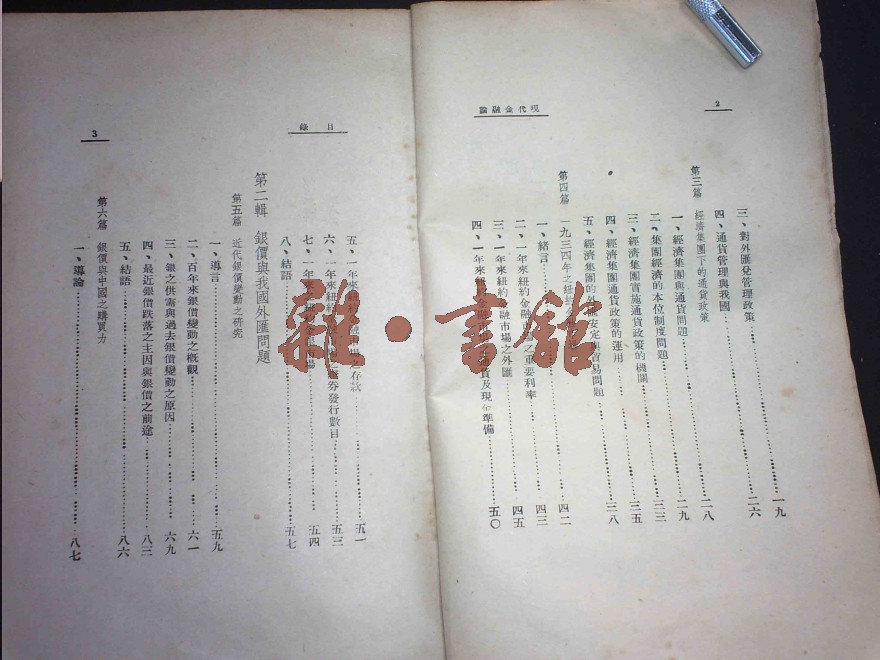 2
現代金融論
三、對外匯兌管理政策……一九
四、通貨管理與我國……二六
第三篇 經濟集團下的通貨政策……二八
一、經濟集團與通貨問題……二九
二、集團經濟的本位制度問題……三三
三、經濟集團實施通貨政策的機關……三五
四、經濟集團通貨政策的運用……三八
五、經濟集團的外匯安定與貿易問題
第四篇 一九三四年之紐約金……四二
一、緒言……四三
二、一年來紐約金融市場之重要利率……四五
三、一年來紐約金融市場之外匯
四、一年來紐約金融市 及現金準備……五〇
目錄
3
五、一年來紐約金融市場之存款……五一
六、一年來紐約 券發行數目……五三
七、一年來紐約 市場……五四
八、結語……五七
第二輯 銀價與我國外匯問題
第五篇 近代銀價變動之研究
一、導言……五九
二、百年來銀價變動之概觀……六一
三、銀之供需與過去銀價變動之原因……六九
四、最近銀價跌落之主因與銀價之前途……八三
五、結語……八六
第六篇 銀價與中國之購買力
一、導論……八七
雜·書館